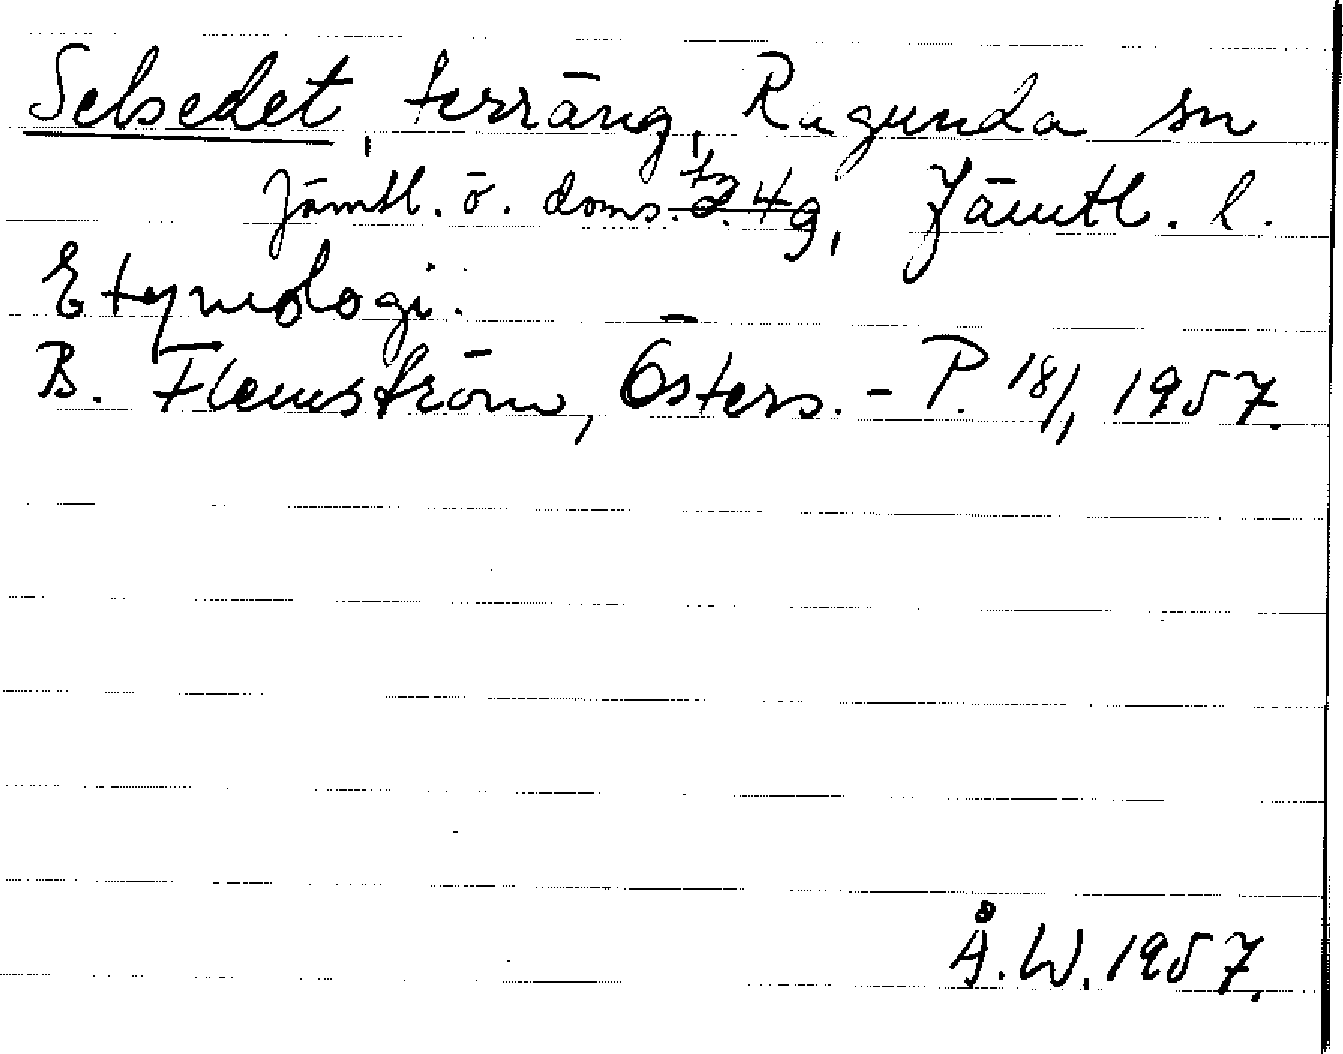 Selsedet, terräng, Ragunda sn
Jämtl. ö. doms. tg, Jämtl. l.
Etymologi.
B. Flemström, Östers. - P. 18/1, 1957.
Å. W. 1957.